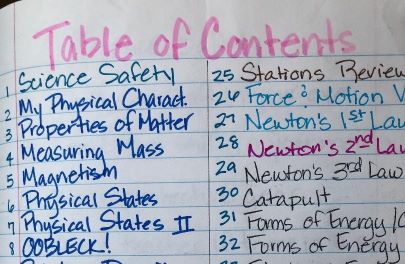 Table of Contents
1 Science Safety
2 My Physical Charact.
3 Properties of Matter
4 Measuring Mass
5 Magnetism
6 Physical States
7 Physical States II
8 OOBLECK!
25 Stations Review
26 Force & Motion V
27 Newton's 1st Law
28 Newton's 2nd Law
29 Newton's 3rd Law
30 Catapult
31 Forms of Energy
32 Forms of Energy